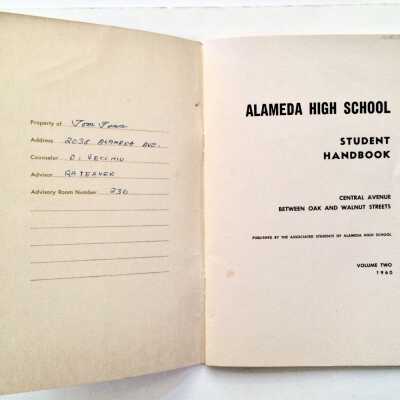 Property of Tom
Address 2038 ALAMEDA AVE.
Counselor
Advisor
Advisory Room Number 230
ALAMEDA HIGH SCHOOL
STUDENT
HANDBOOK
CENTRAL AVENUE
BETWEEN OAK AND WALNUT STREETS
PUBLISHED BY THE ASSOCIATED STUDENTS OF ALAMEDA HIGH SCHOOL
VOLUME TWO
1960